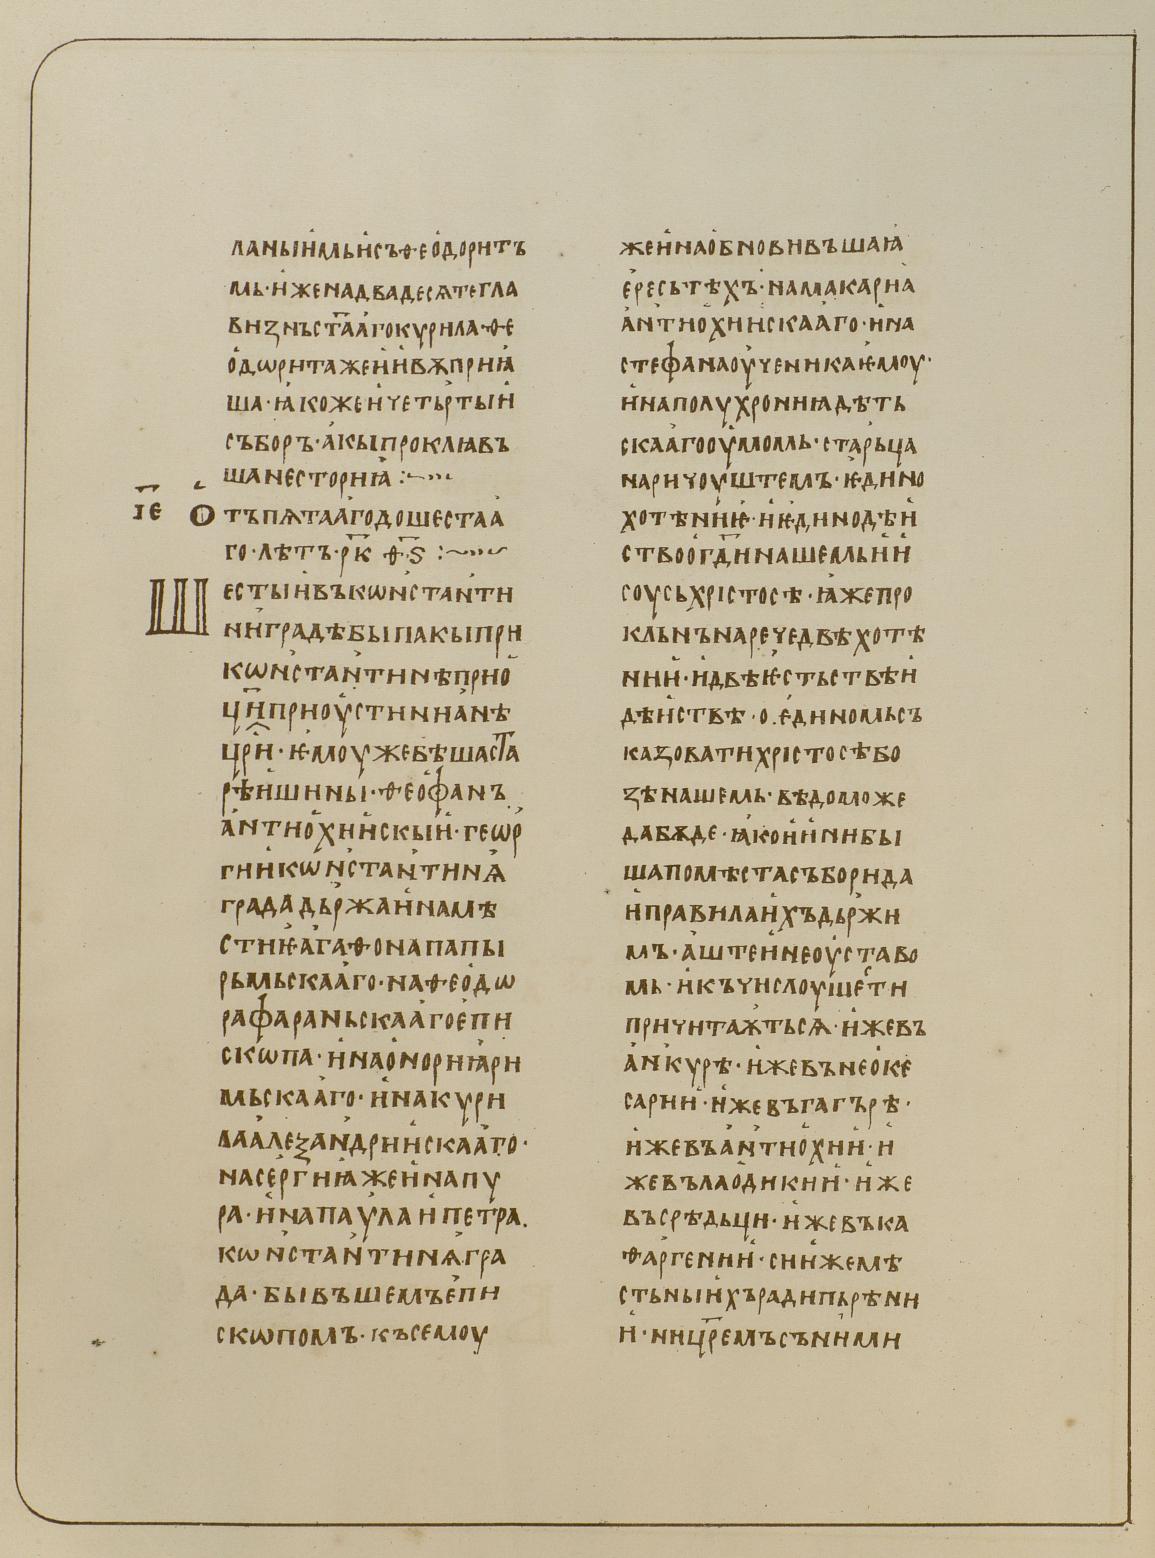 ланыимьисъѳеодорит҄ъ
мь·иженадвадесѧтегла
визнъстаагокурила·ѳе
одѡритажеиивъприꙗ
ша·ꙗкожеичетьртыи
съборъ·акыпроклѧвъ
шанесториꙗ :~
і҃е отъпѧтаагодошестаа
го·лѣтъ·р҃к ѳ·ѕ҃ :~
Шестыивъкѡнстанти
ниградѣбыпакыпри
кѡнстантинѣприо
ц҃ииприоустинианѣ
ц҃ри·ѥмоужебѣшаста
рѣишины·ѳеофанъ
антиохиискыи·геѡр
гиикѡнстантинѧ
грададьржаинамѣ
стиѥагаѳонапапы
рьмьскааго·наѳеодѡ
рафараньскаагоепи
скѡпа·инаонориꙗри
мьскааго·инакури
лаалеѯандриискааго·
насергиꙗжеинапу
ра·инапаулаипетра.
кѡнстантинѧгра
да·бывъшемъепи
скѡпомъ·късемоу
жеинаобновивъшаꙗ
ересьтѣхъ·намакариа
антиохиискааго·ина
стефанаоученикаѥмоу·
инаполухрониꙗдѣть
скаагооумомь·старьца
наричоуштемъ·ѥдино
хотѣниѥ·иѥдинодѣи
ствоог҃динашемьии
соусьхрістосѣ·ꙗжепро
клѧнънаречедвѣхотѣ
нии·идвѣѥстьствѣи
дѣиствѣ·о.единомьсъ
казоватихрістосѣбо
зѣнашемь·вѣдоможе
дабѫде·ꙗкоиинибы
шапомѣстасъборида
иправилаихъдьржи
мъ·аштеинеоуставо
мь·икъчислоушести
причитаѭтьсѧ·ижевъ
анкурѣ·ижевънеоке
сарии·ижевъгагърѣ·
ижевъантиохии·и
жевълаодикии·иже
въсрѣдьци·ижевъка
ѳаргении·сиижемѣ
стьныихърадипьрѣни
и·ниц҃ремъсъними